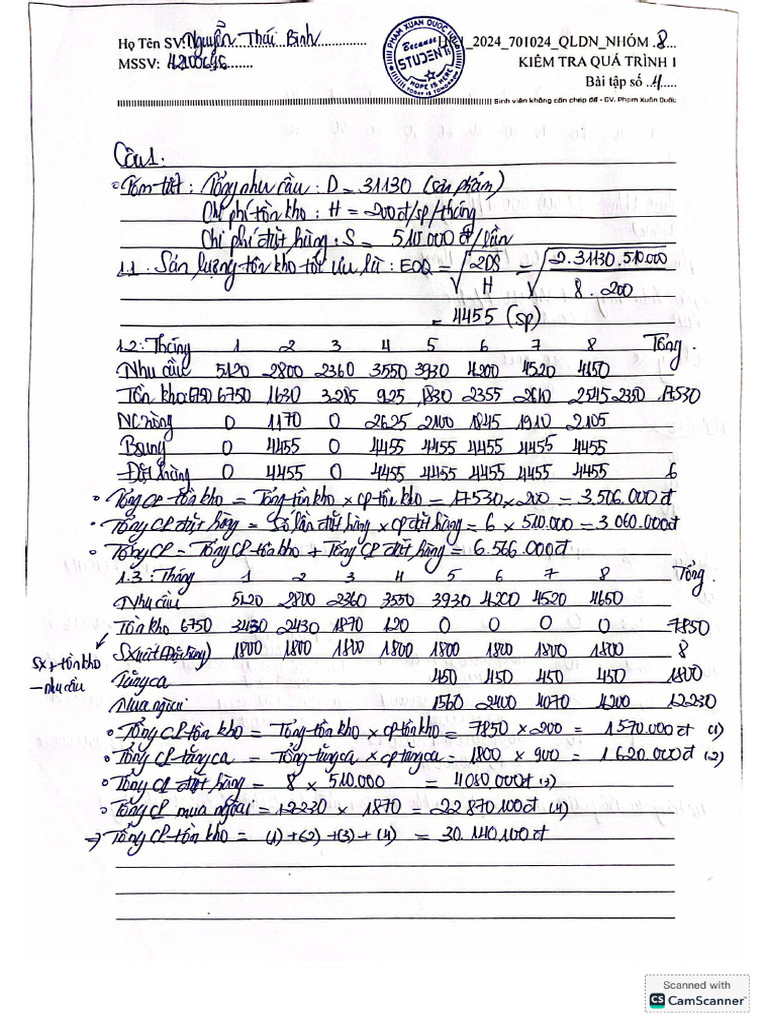 Họ Tên SV: Nguyễn Thái Bình
1_2024_701024_QLDN_NHÓM 8
MSSV:
KIỂM TRA QUÁ TRÌNH 1
Bài tập số 4
PHẠM XUÂN QUỐC
Because
STUDENT
HOPE IS HERE
TODAY IS TOMORROW
Sinh viên không cần chép đề - GV. Phạm Xuân Quốc
Câu 1.
Tóm tắt: Tổng nhu cầu: D = 31130 (sản phẩm)
Chi phí tồn kho: H = 200đ/sp/tháng
Chi phí đặt hàng: S = 510.000đ/lần
1.1. Sản lượng tồn kho tối ưu là: EOQ = √(2DS/H) = √(2.31130.510.000/8.200)
= 4455 (sp)
1.2: Tháng 1 2 3 4 5 6 7 8 Tổng
Nhu cầu 5120 2800 2360 3550 3930 4200 4520 4650
Tồn kho: 6750 6750 1630 3285 925 1830 2355 2610 2545 2350 17530
NC ròng 0 1170 0 2625 2100 1845 1910 2105
0 4455 0 4455 4455 4455 4455 4455
Đặt hàng 0 4455 0 4455 4455 4455 4455 4455 6
Tổng CP tồn kho = Tổng tồn kho × CP tồn kho = 17530 × 200 = 3.506.000đ
Tổng CP đặt hàng = Số lần đặt hàng × CP đặt hàng = 6 × 510.000 = 3 060.000đ
Tổng CP = Tổng CP tồn kho + Tổng CP đặt hàng = 6.566.000đ
1.3: Tháng 1 2 3 4 5 6 7 8 Tổng
Nhu cầu 5120 2800 2360 3550 3930 4200 4520 4650
Tồn kho 6750 3430 2430 1870 120 0 0 0 0 7850
SX + tồn kho
– nhu cầu
SXuất (Đặt hàng) 1800 1800 1800 1800 1800 1800 1800 1800 8
Tăng ca 450 450 450 450 1800
Mua ngoài 1560 2400 4070 4200 12230
Tổng CP tồn kho = Tổng tồn kho × CP tồn kho = 7850 × 200 = 1570.000đ (1)
Tổng CP tăng ca = Tổng tăng ca × CP tăng ca = 1800 × 900 = 1 620.000đ (2)
Tổng CP đặt hàng = 8 × 510.000 = 4080 000đ (3)
Tổng CP mua ngoài = 12230 × 1870 = 22 870 100đ (4)
=> Tổng CP tồn kho = (1) + (2) + (3) + (4) = 30.140 100đ
Scanned with
CS CamScanner